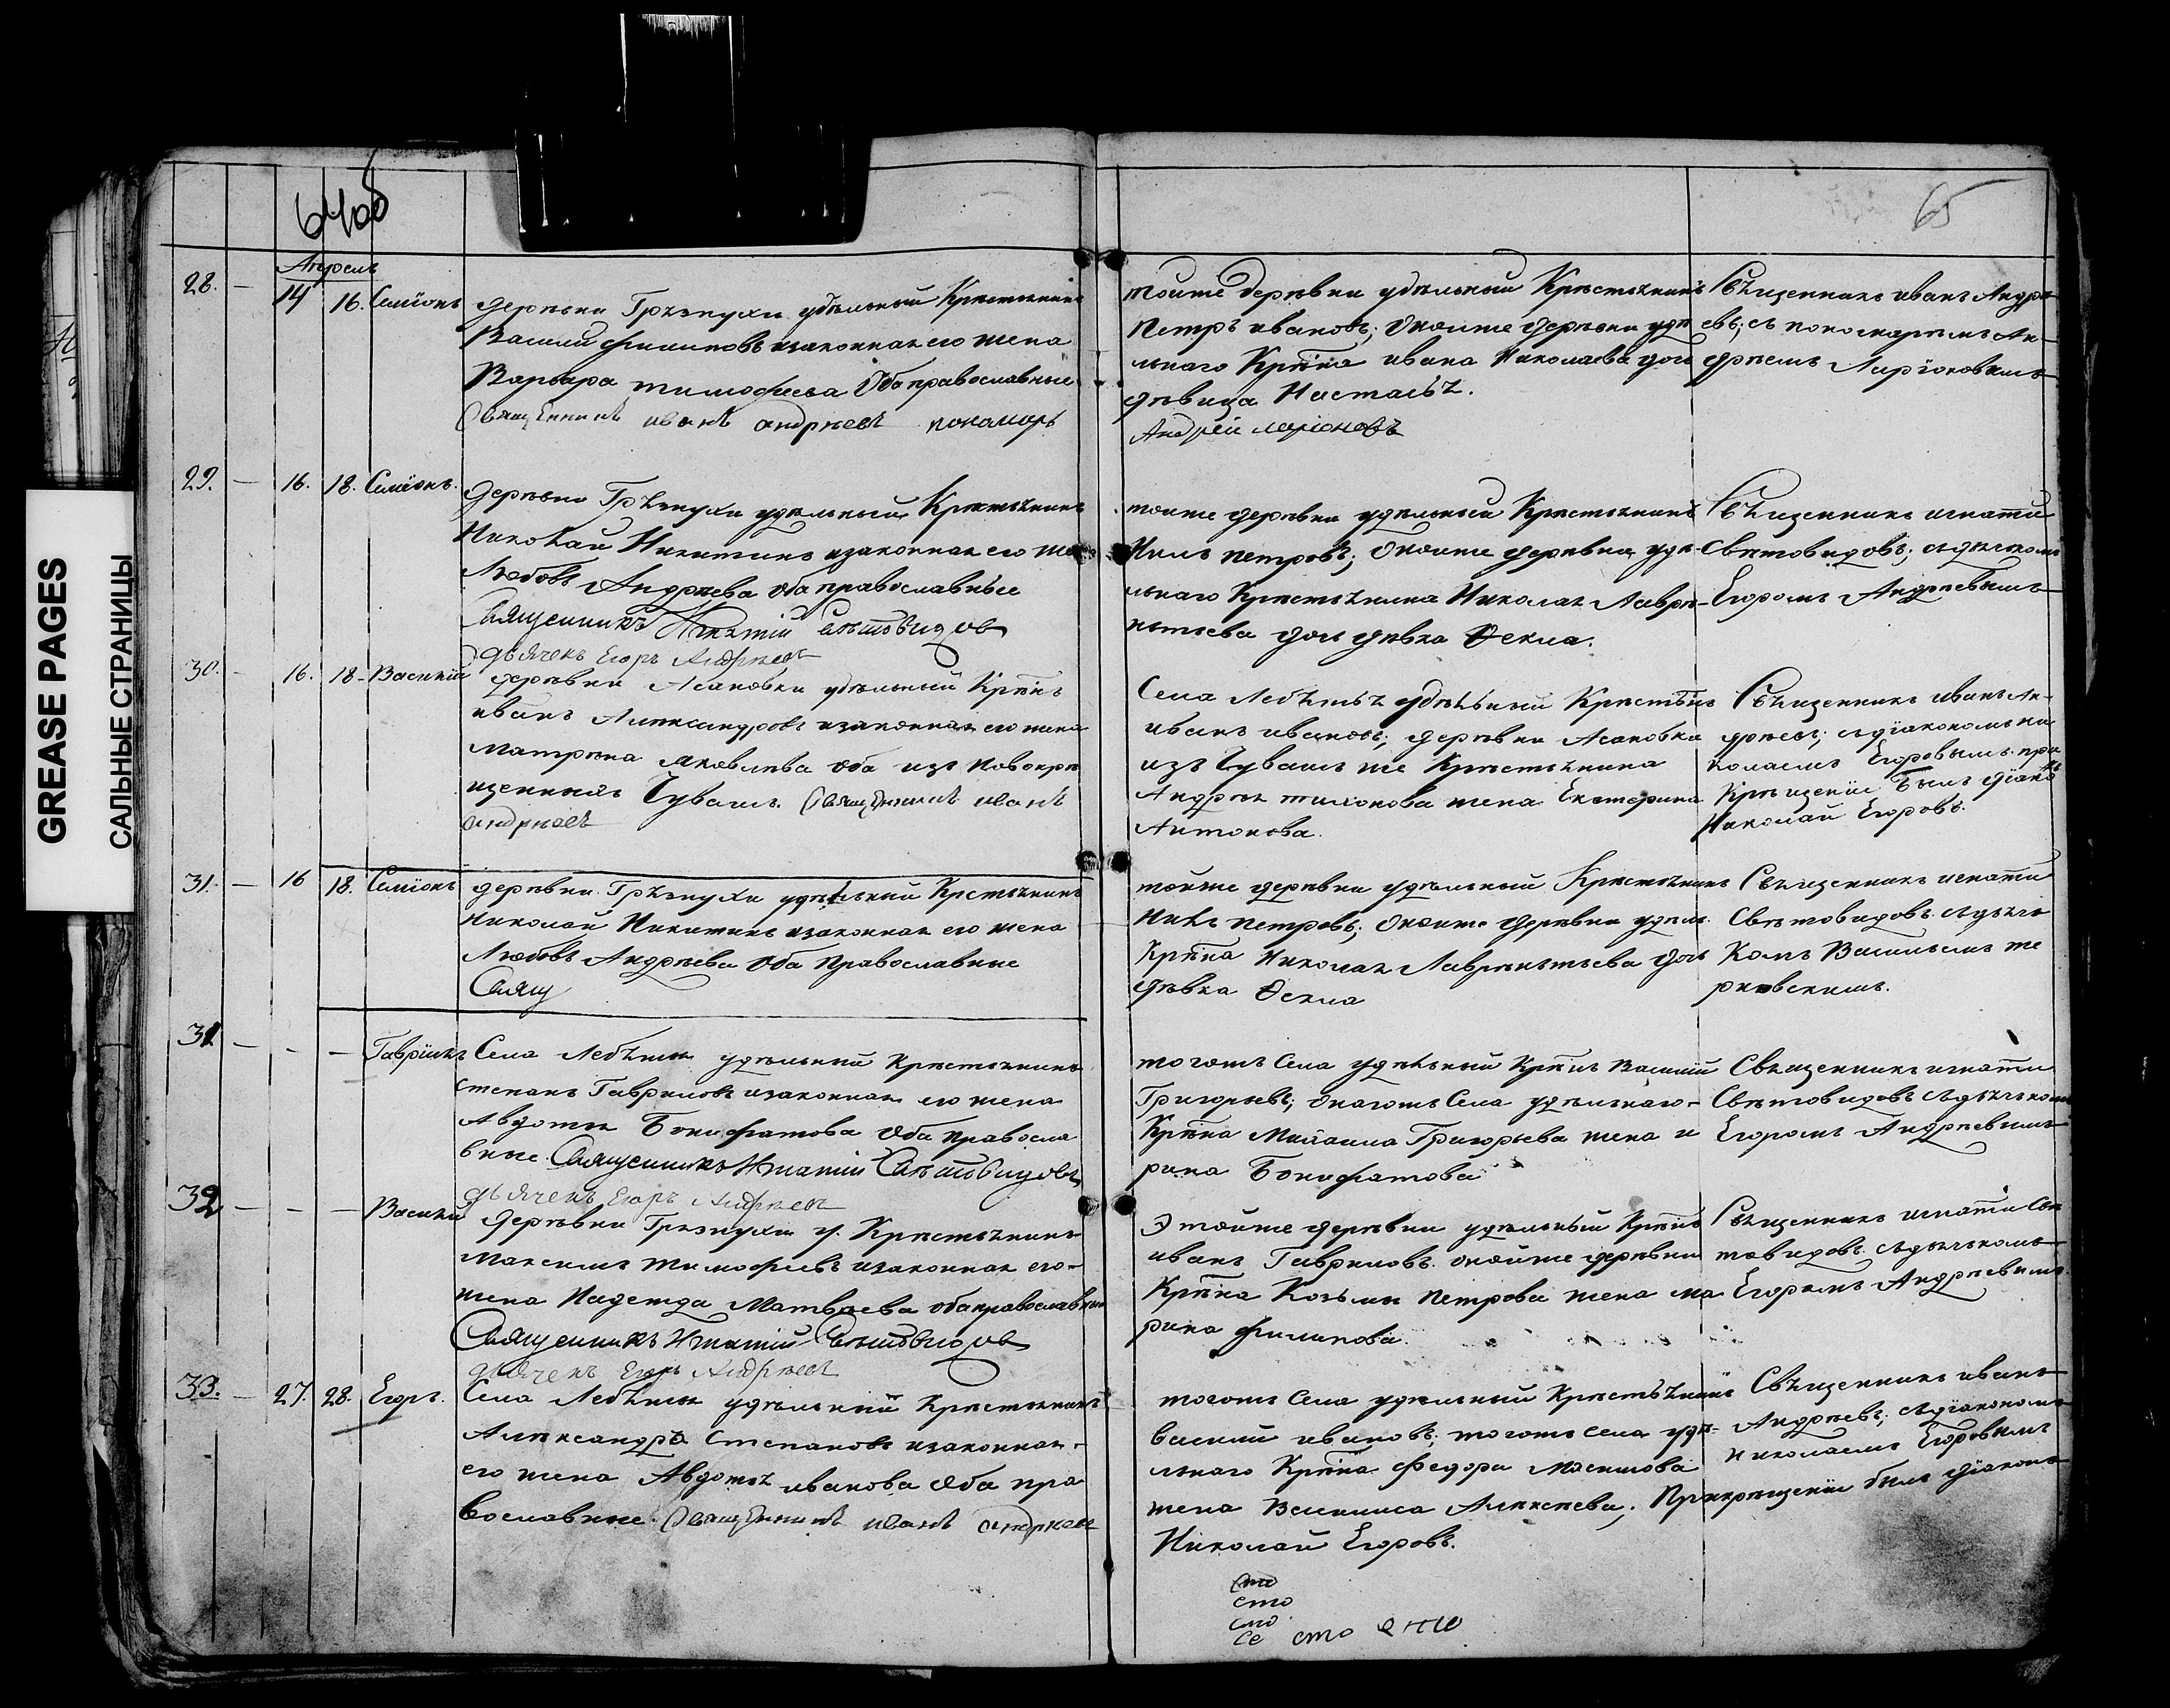 GREASE PAGES
САЛЬНЫЕ СТРАНИЦЫ
64об
Апрель
28. — 14 16. Семіонъ
деревни Грѣзнухи удѣльный Крѣстьянинъ
Василій филиповъ изаконная его жена
Варвара тимофѣева Оба православные
Священникъ иванъ андрѣевъ пономарь
29. — 16. 18. Семіонъ.
деревни Грѣзнухи удѣльный Крѣстьянинъ
Николай Никитинъ изаконная его же
Любовь Андрѣева оба православные
Священникъ Игнатій Свѣтовидовъ
дьячекъ Егоръ Андрѣевъ
30. — 16. 18 — Василій
деревни Асановки удѣльный Крѣнъ
иванъ Александровъ изаконная его жена
матрена яковлѣва оба изъ новокре
щенныхъ Чувашъ. Священникъ иванъ
андрѣевъ
31. — 16 18. Семіонъ
деревни Грѣзнухи удѣльный Крстьянинъ
николай Никитинъ изаконная его жена
Любовь Андрѣева Оба Православные
Свящ
31 — — — Гавріилъ
Села Лебѣжья удѣльный Крѣстьянинъ
степанъ Гавриловъ изаконная его жена
Авдотья Бонифатова Оба правосла
вные Священникъ Игнатій Свѣтовидовъ
дьячекъ Егоръ Андрѣевъ
32 — — — Василій
деревни Грѣзнухи у. Крѣстьянинъ
Максимъ тимофѣевъ изаконная его-
жена Надежда Матвѣева оба православные
Священникъ Игнатій Свѣтовидовъ
дьячекъ Егоръ Андрѣевъ
33. — 27. 28. Егоръ.
Села Лебѣжья удѣльный Крѣстьянинъ
Александра Степановъ изаконная-
его жена Авдотья иванова Оба пра
вославные. Священникъ иванъ андрѣевъ
65
тойже деревни удѣльный Крѣстьянинъ
Петръ ивановъ; Онойже деревни удѣ
льнаго Крѣна ивана Николаева дочь
дѣвица Настасья.
Андрей ларіоновъ
Свѣщенникъ иванъ Андрѣ
евъ; съ пономаремъ Ан-
дреемъ Ларіоновымъ
тойже деревни удѣльный Крѣстьянинъ
Нилъ петровъ; Онойже деревни удѣ-
льнаго Крѣстьянина Николая Лаврѣ-
нтьева дочь дѣвка Ѳекла.
Свѣщенникъ игнатій
Свѣтовидовъ; сдьячкомъ
Егоромъ Андрѣевымъ
Села Лебѣжья удѣльный Крѣстьнъ
иванъ ивановъ; деревни Асановки
изъ Чувашъ же Крѣстьянина
Андрѣя тихонова жена Екатерина
Антонова.
Свѣщенникъ иванъ Ан-
дрѣевъ; сдіакономъ ни
колаемъ Егоровымъ. при
Крѣщеніи былъ діаконъ
Николай Егоровъ.
тойже деревни удѣльный Крѣстьянинъ
Нилъ петровъ; Онойже деревни удѣль
Крѣна Николая Лаврѣнтьева дочь
дѣвка Ѳекла
Свѣщенникъ игнатій
Свѣтовидовъ. сдьяч
Комъ Васильемъ те
рновскимъ.
тогожъ Села удѣльный Крѣнъ Василій
Григорьевъ; Онагожъ Села удѣльнаго-
Крѣна Михаила Григорьева жена и
рина Бонифатова
Свѣщенникъ игнатій
Свѣтовидовъ сдьячькомъ
Егоромъ Андрѣевымъ
Э тойже деревни удѣльный Крѣнъ
иванъ Гавриловъ. онойже деревни
Крѣна Козьмы Петрова жена ма
рина филипова.
Свѣщенникъ игнатій Свѣ
товидовъ. сдьячькомъ
Егоромъ Андрѣевымъ.
тогожъ Села удѣльный Крѣстьянинъ
василій ивановъ; тогожъ села удѣ-
льнаго Крѣна Федора Максимова
жена Василиса Алѣксѣева; Прикрѣщеніи былъ діаконъ
Николай Егоровъ.
Свѣщенникъ иванъ
Андрѣевъ; сдіакономъ
николаемъ Егоровымъ
сто
сто
сто
се сто